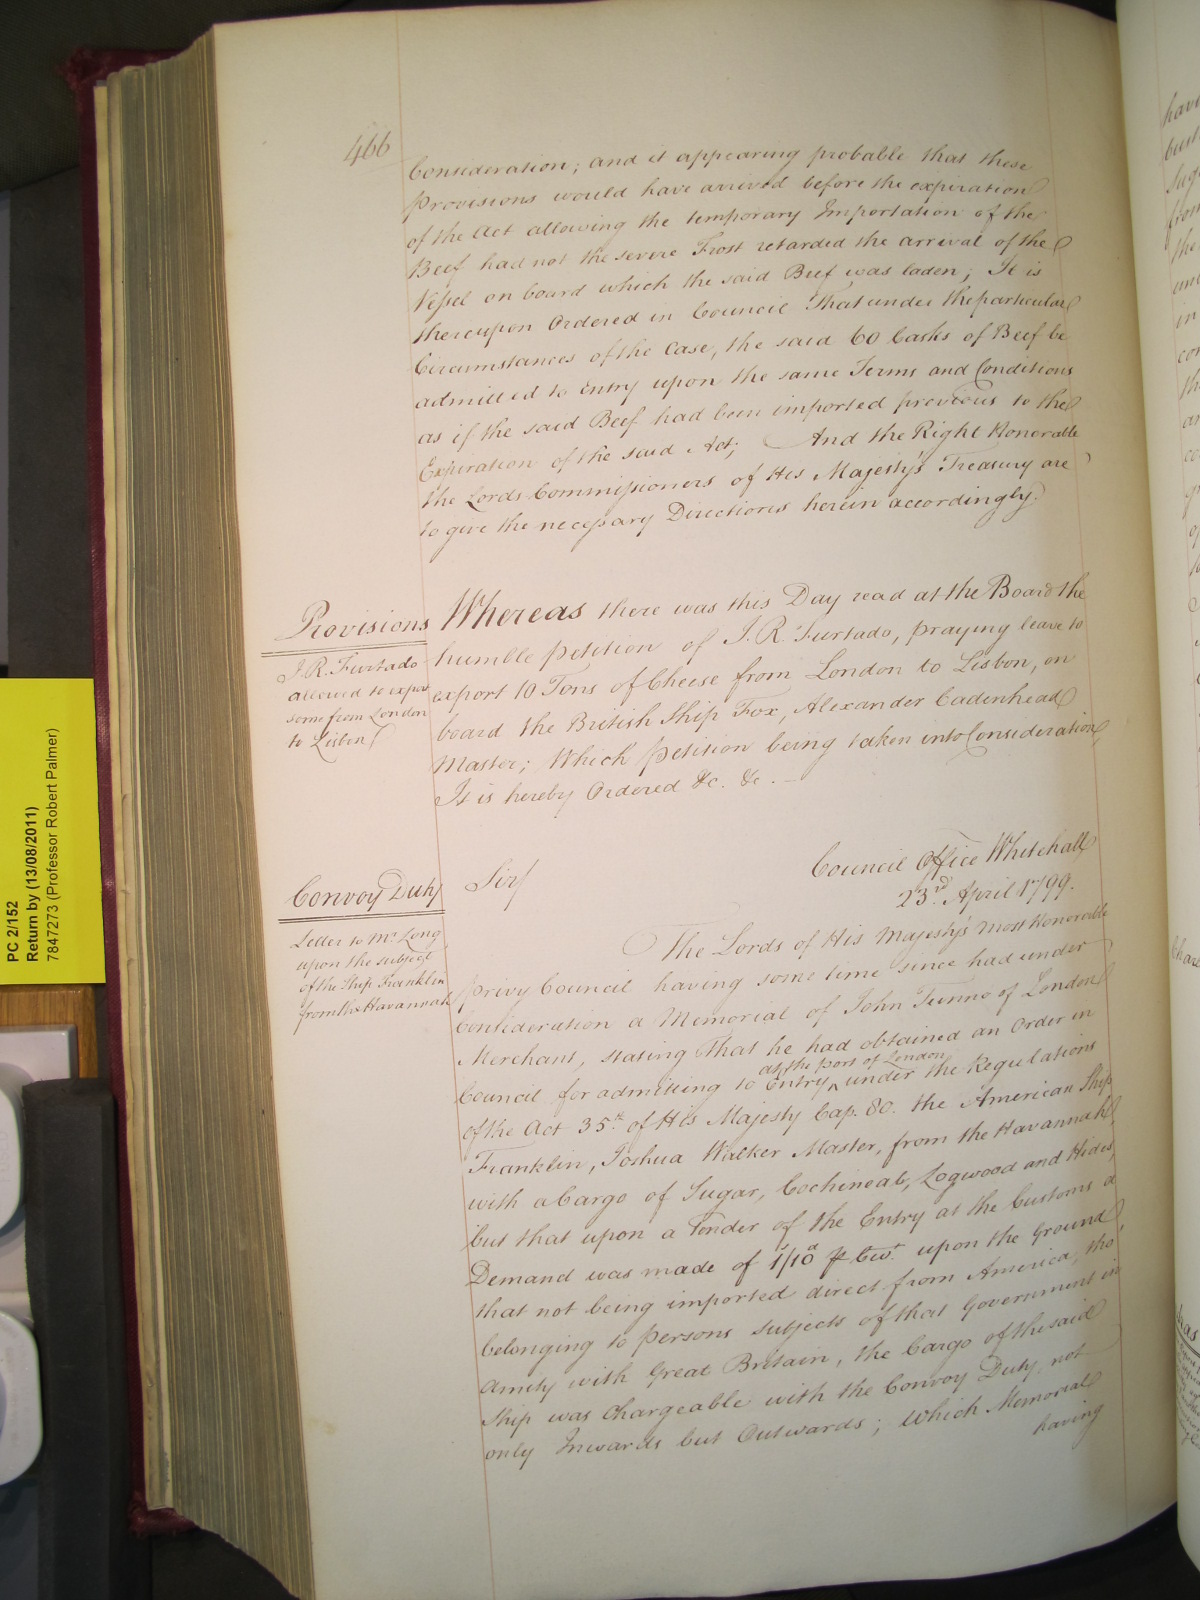 466
Consideration; and it appearing probable that these
Provisions would have arrived before the expiration
of the Act allowing the temporary Importation of the
Beef had not the severe Frost retarded the arrival of the
Vessel on board which the said Beef was laden; It is
thereupon Ordered in Council That under the particular
Circumstances of the Case, the said 60 Casks of Beef be
admitted to Entry upon the same Terms and Conditions
as if the said Beef had been imported previous to the
Expiration of the said Act; And the Right Honorable
the Lords Commissioners of His Majesty's Treasury are
to give the necessary Directions herein accordingly.
Provisions
J. R. Furtado
allowed to export
some from London
to Lisbon
Whereas there was this Day read at the Board the
humble petition of J. R. Furtado, praying leave to
export 10 Tons of Cheese from London to Lisbon, on
board the British Ship Fox, Alexander Cadenhead
Master; Which petition being taken into Consideration
It is hereby Ordered &c. &c. —
Convoy Duty
Letter to Mr. Long
upon the subject
of the Ship Franklin
from the Havannah
Council Office Whitehall
23rd. April 1799.
Sir/
The Lords of His Majesty's most Honorable
privy Council having some time since had under
Consideration a Memorial of John Tunno of London
Merchant, stating That he had obtained an Order in
at the port of London
Council for admitting to Entry ^ under the Regulations
of the Act 35th. of His Majesty Cap. 80. the American Ship
Franklin, Joshua Walker Master, from the Havannah,
with a Cargo of Sugar, Cochineal, Logwood and Hides,
but that upon a Tender of the Entry at the Customs a
Demand was made of 1/10d ⅌ Cwt. upon the Ground
that not being imported direct from America, tho
belonging to persons subjects of that Government in
Amity with Great Britain, the Cargo of the said
Ship was Chargeable with the Convoy Duty, not
only Inwards but Outwards; Which Memorial
having
PC 2/152
Return by (13/08/2011)
7847273 (Professor Robert Palmer)